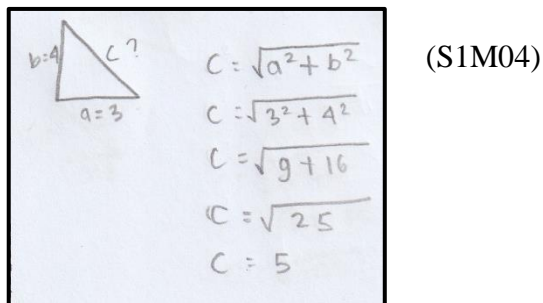 b=4
c?
a=3
C = √a² + b²
C = √3² + 4²
C = √9 + 16
C = √25
C = 5
(S1M04)